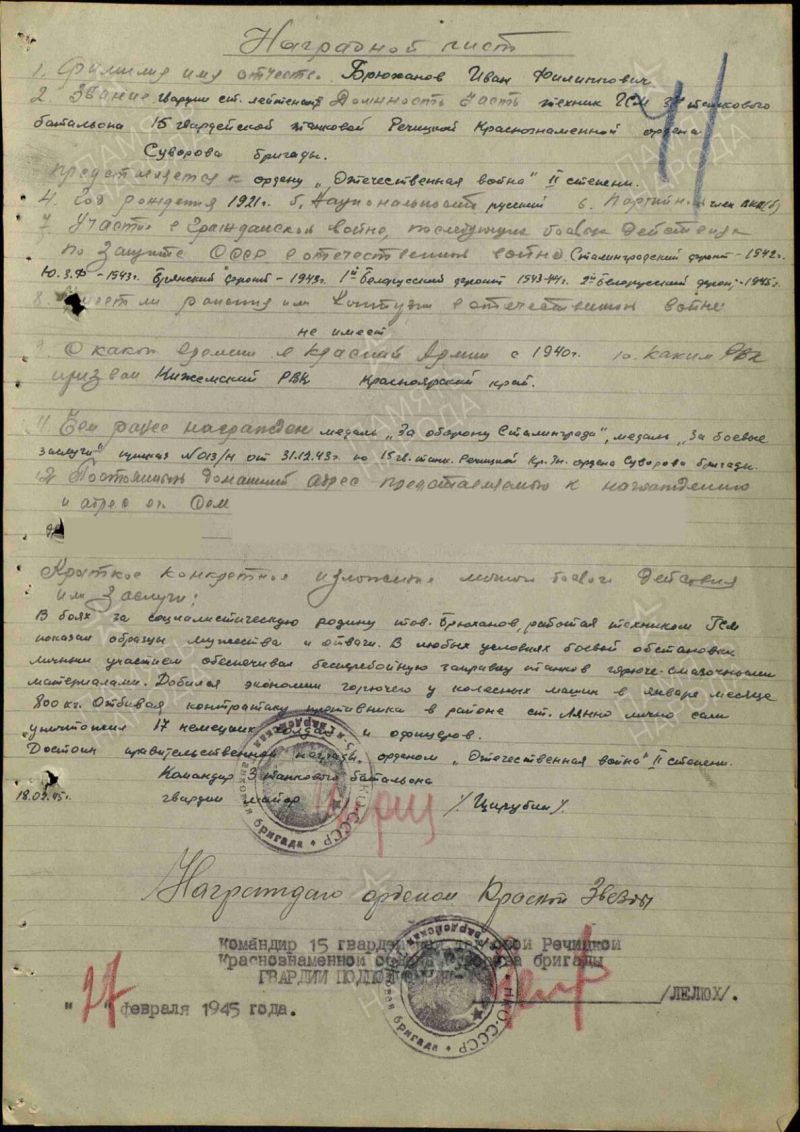 Наградной лист
1. Фамилия имя отчество Брюханов Иван Филиппович
2. Звание гвардии ст. лейтенант Должность Часть техник ГСМ 3 танкового
батальона 15 гвардейской танковой Речицкой Краснознаменной ордена
Суворова бригады.
Представляется к ордену „Отечественная война" II степени.
4. Год рождения 1921г. 5. Национальность русский 6. Партийн. член ВКП(б)
7. Участие в Гражданской войне, последующих боевых действиях
по защите СССР в отечественной войне Сталинградский фронт - 1942г.
Ю.З.Ф - 1943г. Брянский фронт - 1943г. 1й Белорусский фронт 1943-44г. 2й Белорусский фронт - 1945г.
8. Имеет ли ранения или контузии в отечественной войне
не имеет
9. С какого времени в Красной Армии с 1940г. 10. Каким РВК
призван Нижемский РВК Красноярский край.
11. Чем ранее награжден медаль „За оборону Сталинграда", медаль „За боевые
заслуги" приказ №013/Н от 31.12.43г. по 15 гв. танк. Речицкой Кр.Зн. ордена Суворова бригады.
12. Постоянный домашний адрес представляемого к награждению
и адрес его семьи
Краткое конкретное изложение личного боевого действия
или заслуги:
В боях за социалистическую родину тов. Брюханов, работая техником ГСМ
показал образцы мужества и отваги. В любых условиях боевой обстановки
личным участием обеспечивал бесперебойную заправку танков горюче-смазочными
материалами. Добился экономии горючего у колесных машин в январе месяце
800 кг. Отбивая контратаку противника в районе ст. Лянно лично сам
уничтожил 17 немецких солдат и офицеров.
Достоин правительственной награды орденом „Отечественная война" II степени.
Командир 3 танкового батальона
18.02.45г. гвардии майор /Цирубин/.
Награждаю орденом Красной Звезды
Командир 15 гвардейской танковой Речицкой
Краснознаменной ордена Суворова бригады
ГВАРДИИ ПОДПОЛКОВНИК
/ЛЕЛЮХ/.
"27" февраля 1945 года.
41
НКО-СССР
бригада
НКО-СССР
бригада
ПАМЯТЬ НАРОДА